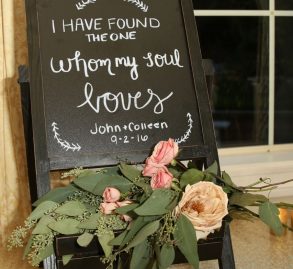 I HAVE FOUND
THE ONE
whom my soul
loves
John+Colleen
9-2-16